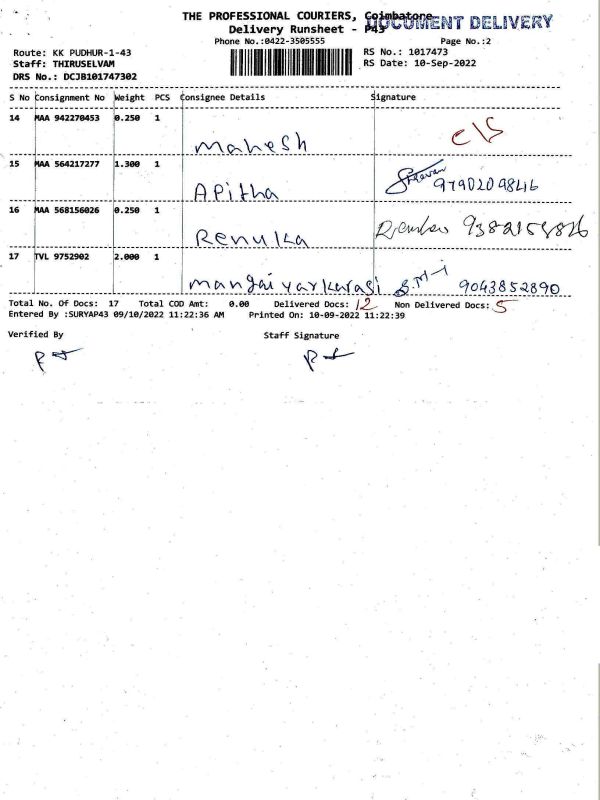 THE PROFESSIONAL COURIERS, Coimbatore
DOCUMENT DELIVERY
Delivery Runsheet - P43
Phone No.:0422-3505555 Page No.:2
Route: KK PUDHUR-1-43 RS No.: 1017473
Staff: THIRUSELVAM RS Date: 10-Sep-2022
DRS No.: DCJB101747302
S No Consignment No Weight PCS Consignee Details Signature
14 MAA 942270453 0.250 1
Mahesh C/S
15 MAA 564217277 1.300 1
APitha 9790209846
16 MAA 568156026 0.250 1
Renuka
17 TVL 9752902 2.000 1
mangaiyarkarasi 9043852890
Total No. Of Docs: 17 Total COD Amt: 0.00 Delivered Docs: 12 Non Delivered Docs: 5
Entered By :SURYAP43 09/10/2022 11:22:36 AM Printed On: 10-09-2022 11:22:39
Verified By Staff Signature